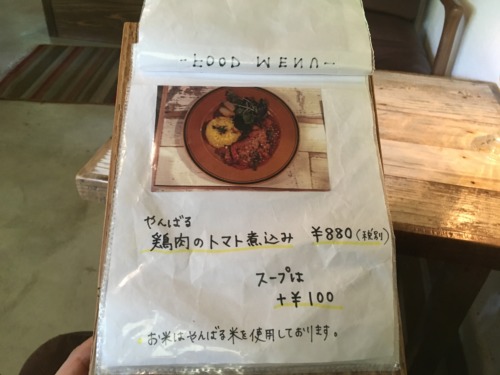 -FOOD MENU-
やんばる
鶏肉のトマト煮込み ¥880(税別)
スープは
+¥100
お米はやんばる米を使用しております。